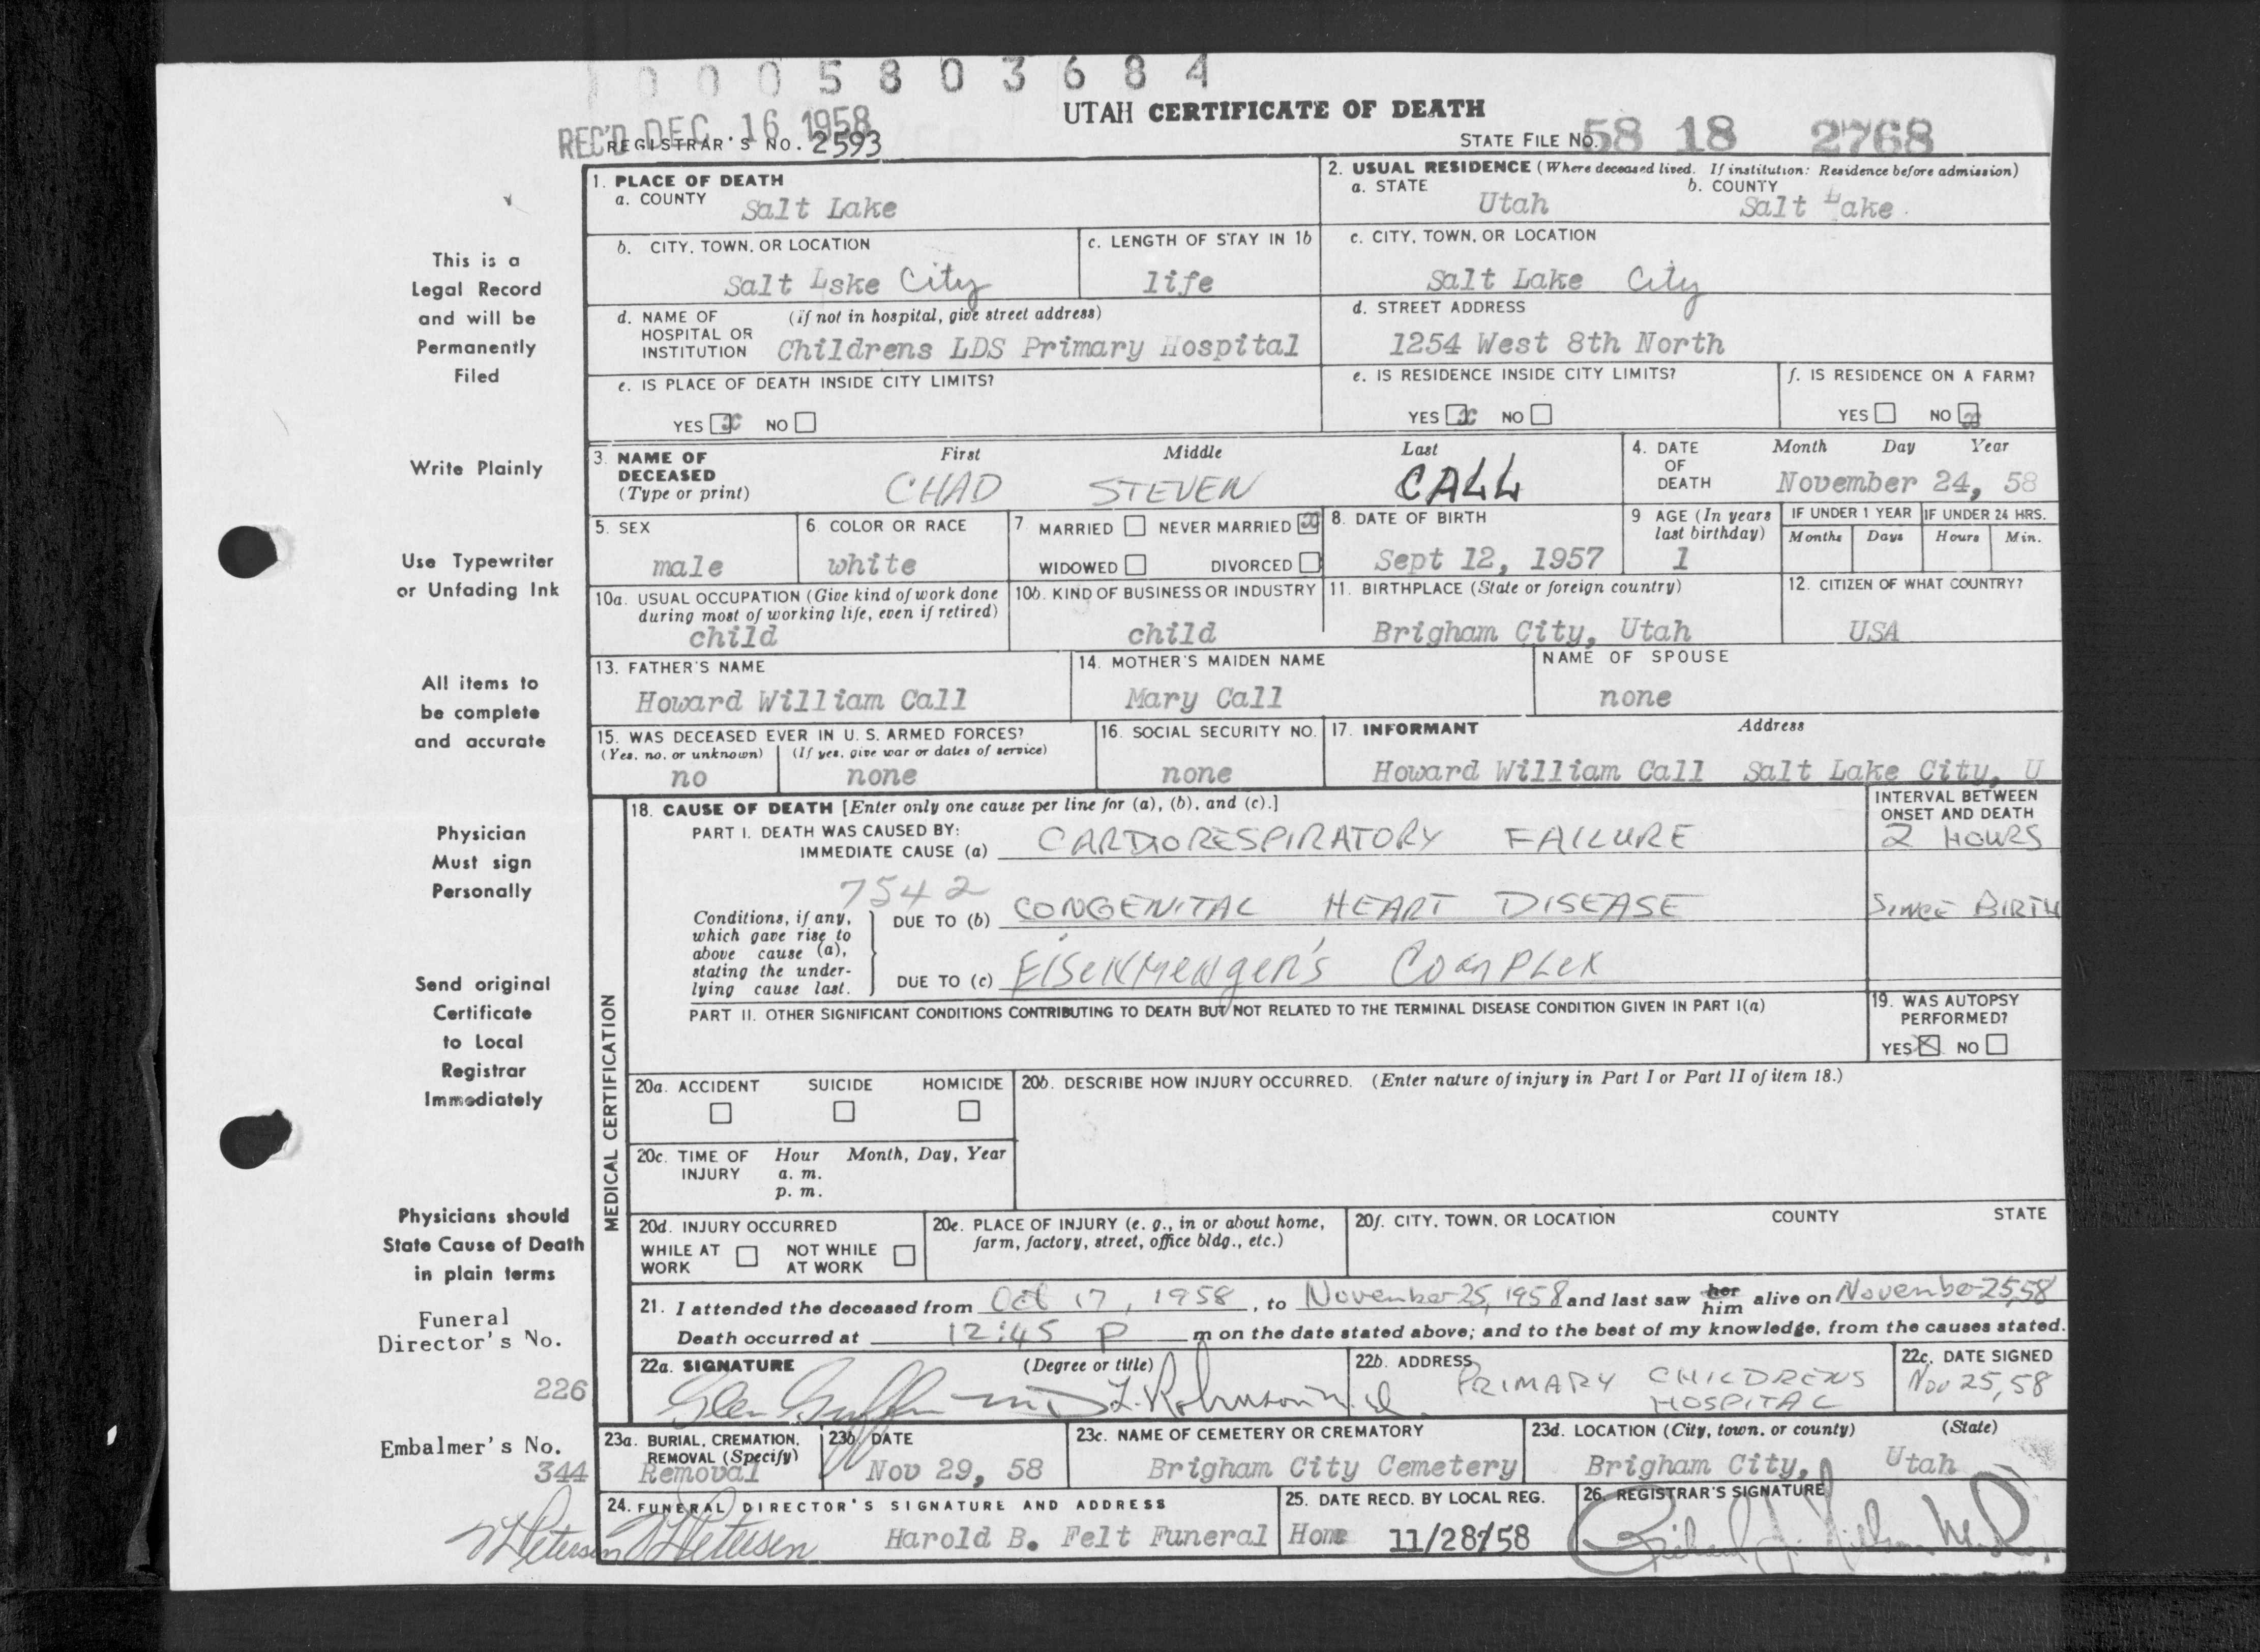 0 0 0 5 8 0 3 6 8 4
UTAH CERTIFICATE OF DEATH
REC'D DEC. 16 1958
REGISTRAR'S NO. 2593
STATE FILE NO. 58 18 2768
1. PLACE OF DEATH
a. COUNTY Salt Lake
2. USUAL RESIDENCE (Where deceased lived. If institution: Residence before admission)
a. STATE Utah b. COUNTY Salt Lake
b. CITY, TOWN, OR LOCATION Salt Lske City
c. LENGTH OF STAY IN 1b life
c. CITY, TOWN, OR LOCATION Salt Lake City
d. NAME OF HOSPITAL OR INSTITUTION (If not in hospital, give street address) Childrens LDS Primary Hospital
d. STREET ADDRESS 1254 West 8th North
e. IS PLACE OF DEATH INSIDE CITY LIMITS?
YES x NO
e. IS RESIDENCE INSIDE CITY LIMITS?
YES x NO
f. IS RESIDENCE ON A FARM?
YES NO x
3. NAME OF DECEASED (Type or print)
First Middle Last
CHAD STEVEN CALL
4. DATE OF DEATH Month Day Year
November 24, 58
5. SEX male
6. COLOR OR RACE white
7. MARRIED NEVER MARRIED x
WIDOWED DIVORCED
8. DATE OF BIRTH Sept 12, 1957
9 AGE (In years last birthday) 1
IF UNDER 1 YEAR Months Days
IF UNDER 24 HRS. Hours Min.
10a. USUAL OCCUPATION (Give kind of work done during most of working life, even if retired) child
10b. KIND OF BUSINESS OR INDUSTRY child
11. BIRTHPLACE (State or foreign country) Brigham City, Utah
12. CITIZEN OF WHAT COUNTRY? USA
13. FATHER'S NAME Howard William Call
14. MOTHER'S MAIDEN NAME Mary Call
NAME OF SPOUSE none
15. WAS DECEASED EVER IN U. S. ARMED FORCES?
(Yes, no, or unknown) no (If yes, give war or dates of service) none
16. SOCIAL SECURITY NO. none
17. INFORMANT Address
Howard William Call Salt Lake City, U
18. CAUSE OF DEATH [Enter only one cause per line for (a), (b), and (c).]
INTERVAL BETWEEN ONSET AND DEATH
PART I. DEATH WAS CAUSED BY:
IMMEDIATE CAUSE (a) CARDIORESPIRATORY FAILURE 2 HOURS
7542
Conditions, if any, which gave rise to above cause (a), stating the underlying cause last.
DUE TO (b) CONGENITAL HEART DISEASE SINCE BIRTH
DUE TO (c) EISENMENGER'S COMPLEX
PART II. OTHER SIGNIFICANT CONDITIONS CONTRIBUTING TO DEATH BUT NOT RELATED TO THE TERMINAL DISEASE CONDITION GIVEN IN PART I(a)
19. WAS AUTOPSY PERFORMED?
YES X NO
MEDICAL CERTIFICATION
20a. ACCIDENT SUICIDE HOMICIDE
20b. DESCRIBE HOW INJURY OCCURRED. (Enter nature of injury in Part I or Part II of item 18.)
20c. TIME OF INJURY Hour a. m. p. m. Month, Day, Year
20d. INJURY OCCURRED
WHILE AT WORK NOT WHILE AT WORK
20e. PLACE OF INJURY (e. g., in or about home, farm, factory, street, office bldg., etc.)
20f. CITY, TOWN, OR LOCATION COUNTY STATE
21. I attended the deceased from Oct 17, 1958, to November 25, 1958 and last saw her him alive on November 25, 58
Death occurred at 12:45 P m on the date stated above; and to the best of my knowledge, from the causes stated.
22a. SIGNATURE (Degree or title)
Glen Griffin MD L. Robinson M.D.
22b. ADDRESS PRIMARY CHILDRENS HOSPITAL
22c. DATE SIGNED Nov 25, 58
23a. BURIAL, CREMATION, REMOVAL (Specify) Removal
23b. DATE Nov 29, 58
23c. NAME OF CEMETERY OR CREMATORY Brigham City Cemetery
23d. LOCATION (City, town, or county) (State)
Brigham City, Utah
24. FUNERAL DIRECTOR'S SIGNATURE AND ADDRESS
Petersen Petersen Harold B. Felt Funeral Home
25. DATE RECD. BY LOCAL REG. 11/28/58
26. REGISTRAR'S SIGNATURE
This is a
Legal Record
and will be
Permanently
Filed
Write Plainly
Use Typewriter
or Unfading Ink
All items to
be complete
and accurate
Physician
Must sign
Personally
Send original
Certificate
to Local
Registrar
Immediately
Physicians should
State Cause of Death
in plain terms
Funeral
Director's No.
226
Embalmer's No.
344